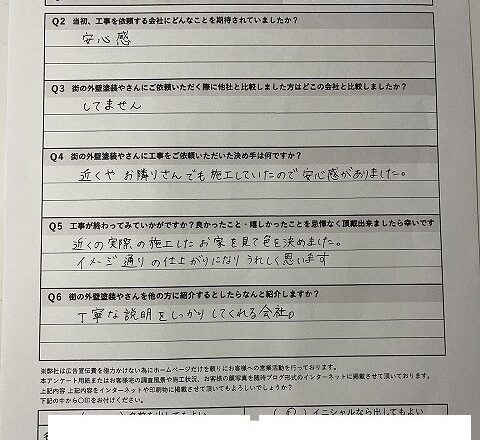 Q2 当初、工事を依頼する会社にどんなことを期待されていましたか?
安心感
Q3 街の外壁塗装やさんにご依頼いただく際に他社と比較しました方はどこの会社と比較しましたか?
してません
Q4 街の外壁塗装やさんに工事をご依頼いただいた決め手は何ですか?
近くや お隣りさんでも施工していたので安心感がありました。
Q5 工事が終わってみていかがですか?良かったこと・嬉しかったことを忌憚なく頂戴出来ましたら幸いです
近くの実際の施工したお家を見て色を決めました。
イメージ通りの仕上がりになりうれしく思います
Q6 街の外壁塗装やさんを他の方に紹介するとしたらなんと紹介しますか?
丁寧な説明をしっかりしてくれる会社。
※弊社は広告宣伝費を極力かけない為にホームページだけを頼りにお客様への営業活動を行っております。
本アンケート用紙またはお客様宅の調査風景や施工状況、お客様の顔写真を随時ブログ形式のインターネットに掲載させて頂いております。
上記内容 上記内容をインターネットや印刷物に掲載させて頂いてもよろしいでしょうか?
下記の中から〇印をお付けください。
イニシャルなら出してもよい